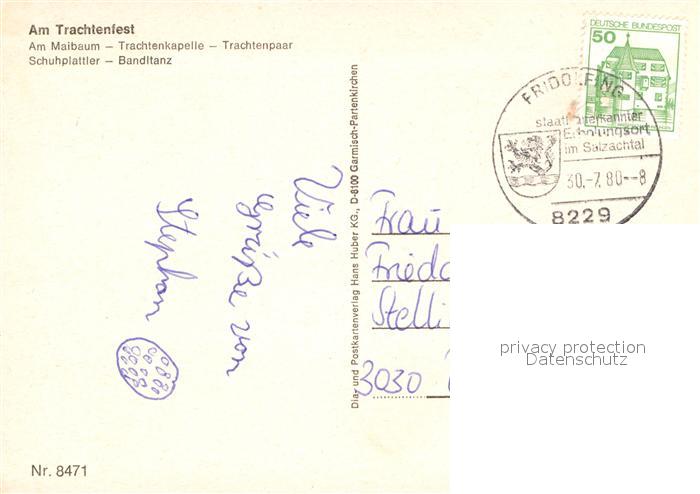 Am Trachtenfest
Am Maibaum — Trachtenkapelle — Trachtenpaar
Schuhplattler — Bandltanz
DEUTSCHE BUNDESPOST
50
FRIDOLFING
staatl. anerkannter
Erholungsort
im Salzachtal
30.-7.80--8
8229
Viele
Grüße von
Stephan
Dia- und Postkartenverlag Hans Huber KG., D-8100 Garmisch-Partenkirchen
Frau
3030
privacy protection
Datenschutz
Nr. 8471